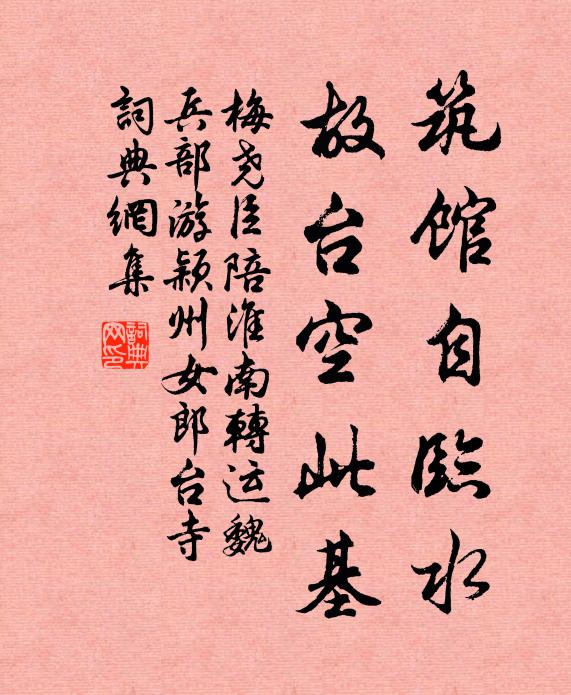 筑馆自臨水
故台空此基
梅尧臣陪淮南轉运魏
兵部游颍州女郎台寺
詞典網集
詞典
网印